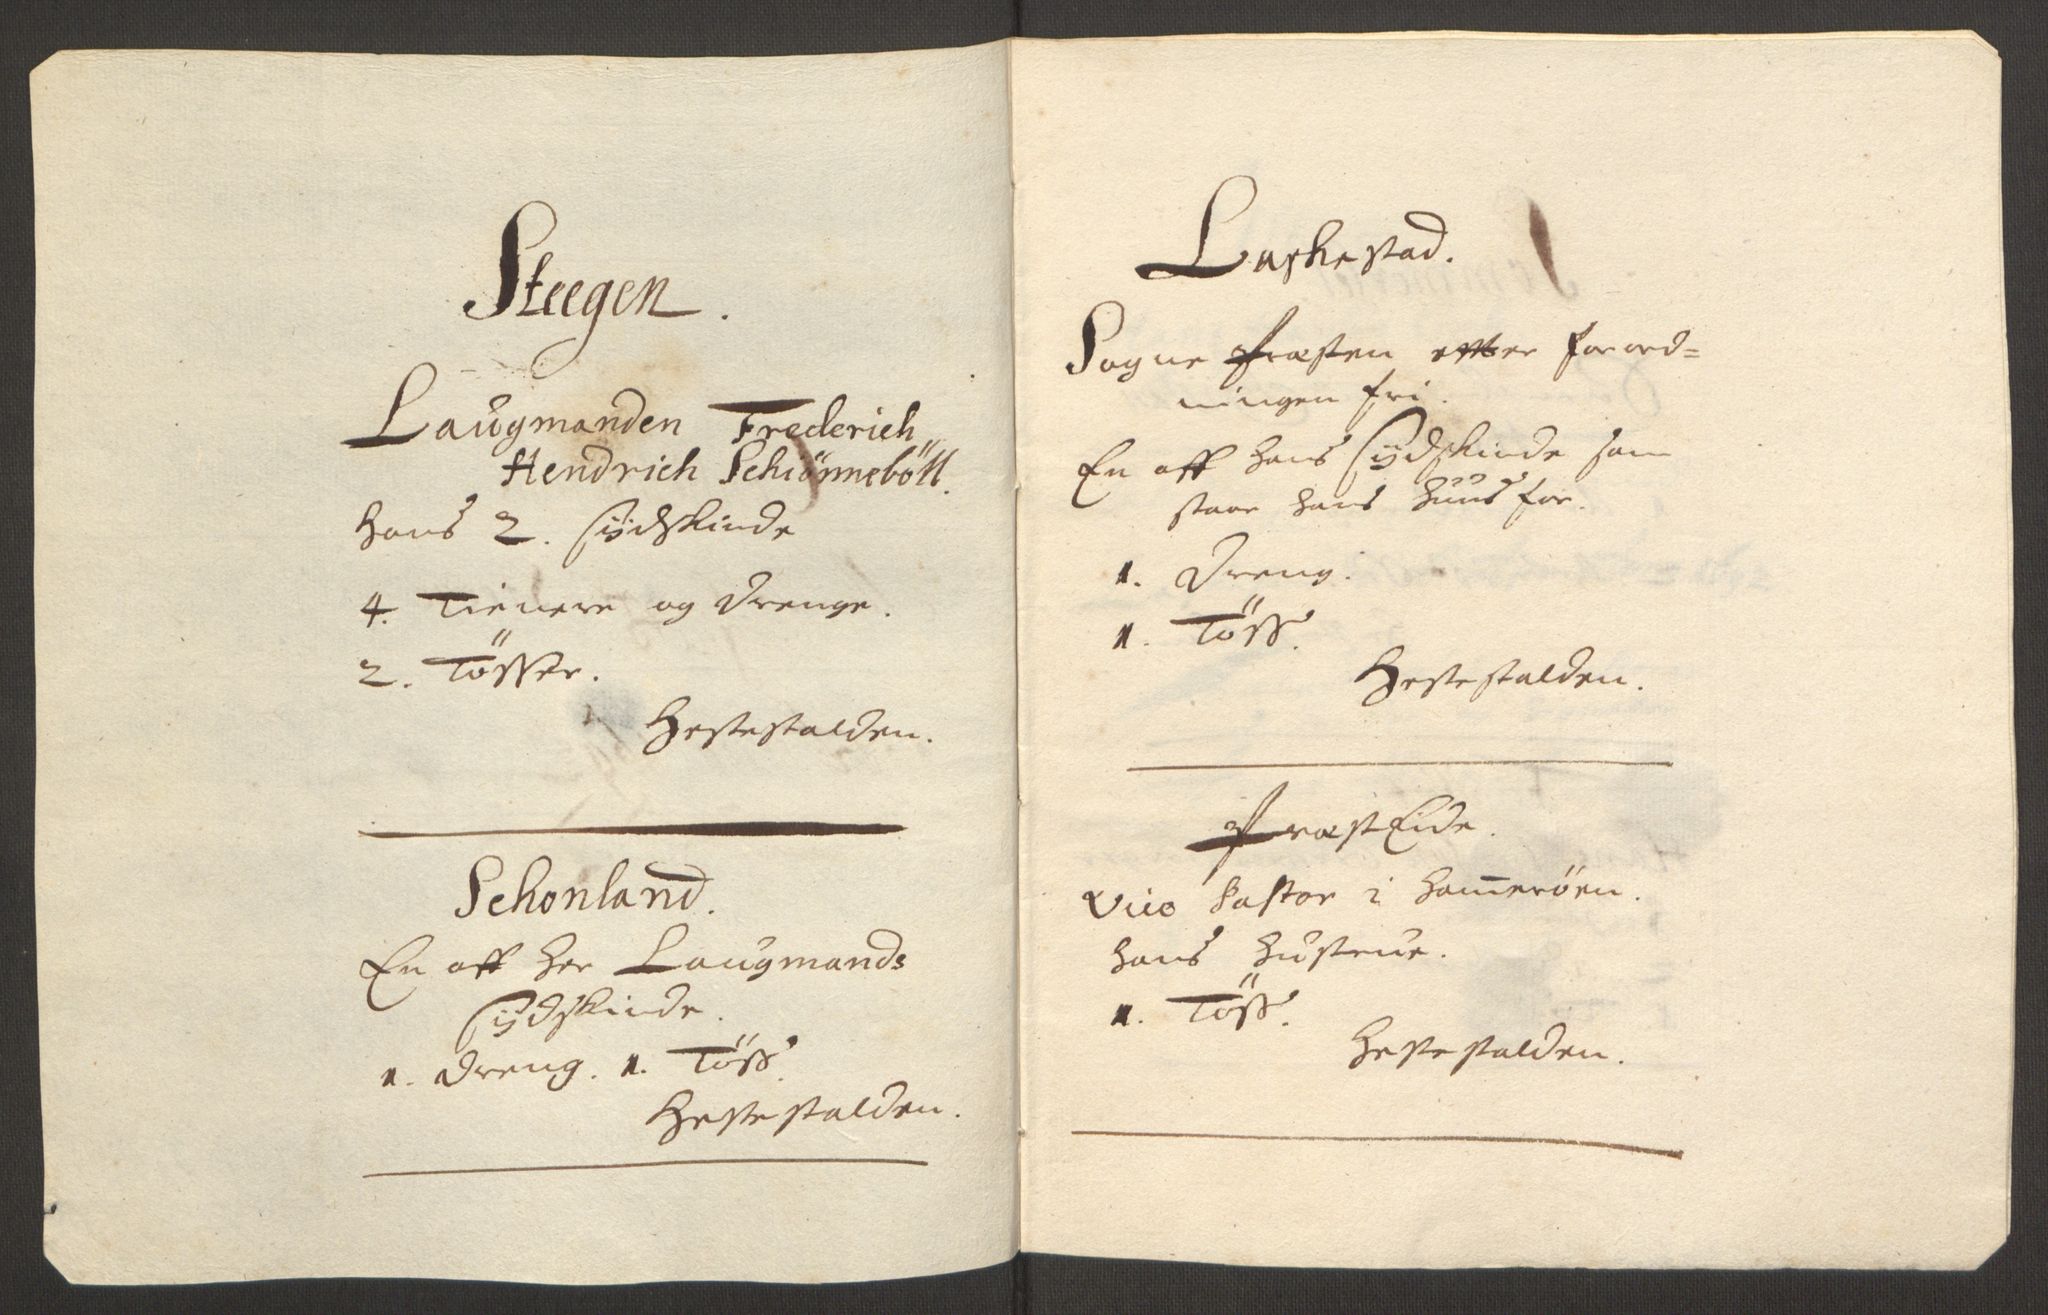 Steegen.
Laugmanden Frederich
Hendrich Schiönneböll.
Hans 2. Sÿdskinde
4. Tienere og Drenge.
2. Tösser.
Hestestalden.
Schonland.
En aff her Laugmands
Sÿdskinde.
1. Dreng. 1. Töss.
Hestestalden.
Laskestad.
Sogne Præsten efter forord=
ningen fri.
En aff hans Sÿdskinde som
staar hans huus for.
1. Dreng.
1. Töss.
Hestestalden.
PræstEide.
Vice Pastor i Hameröen.
hans Hustrue.
1. Töss.
Hestestalden.